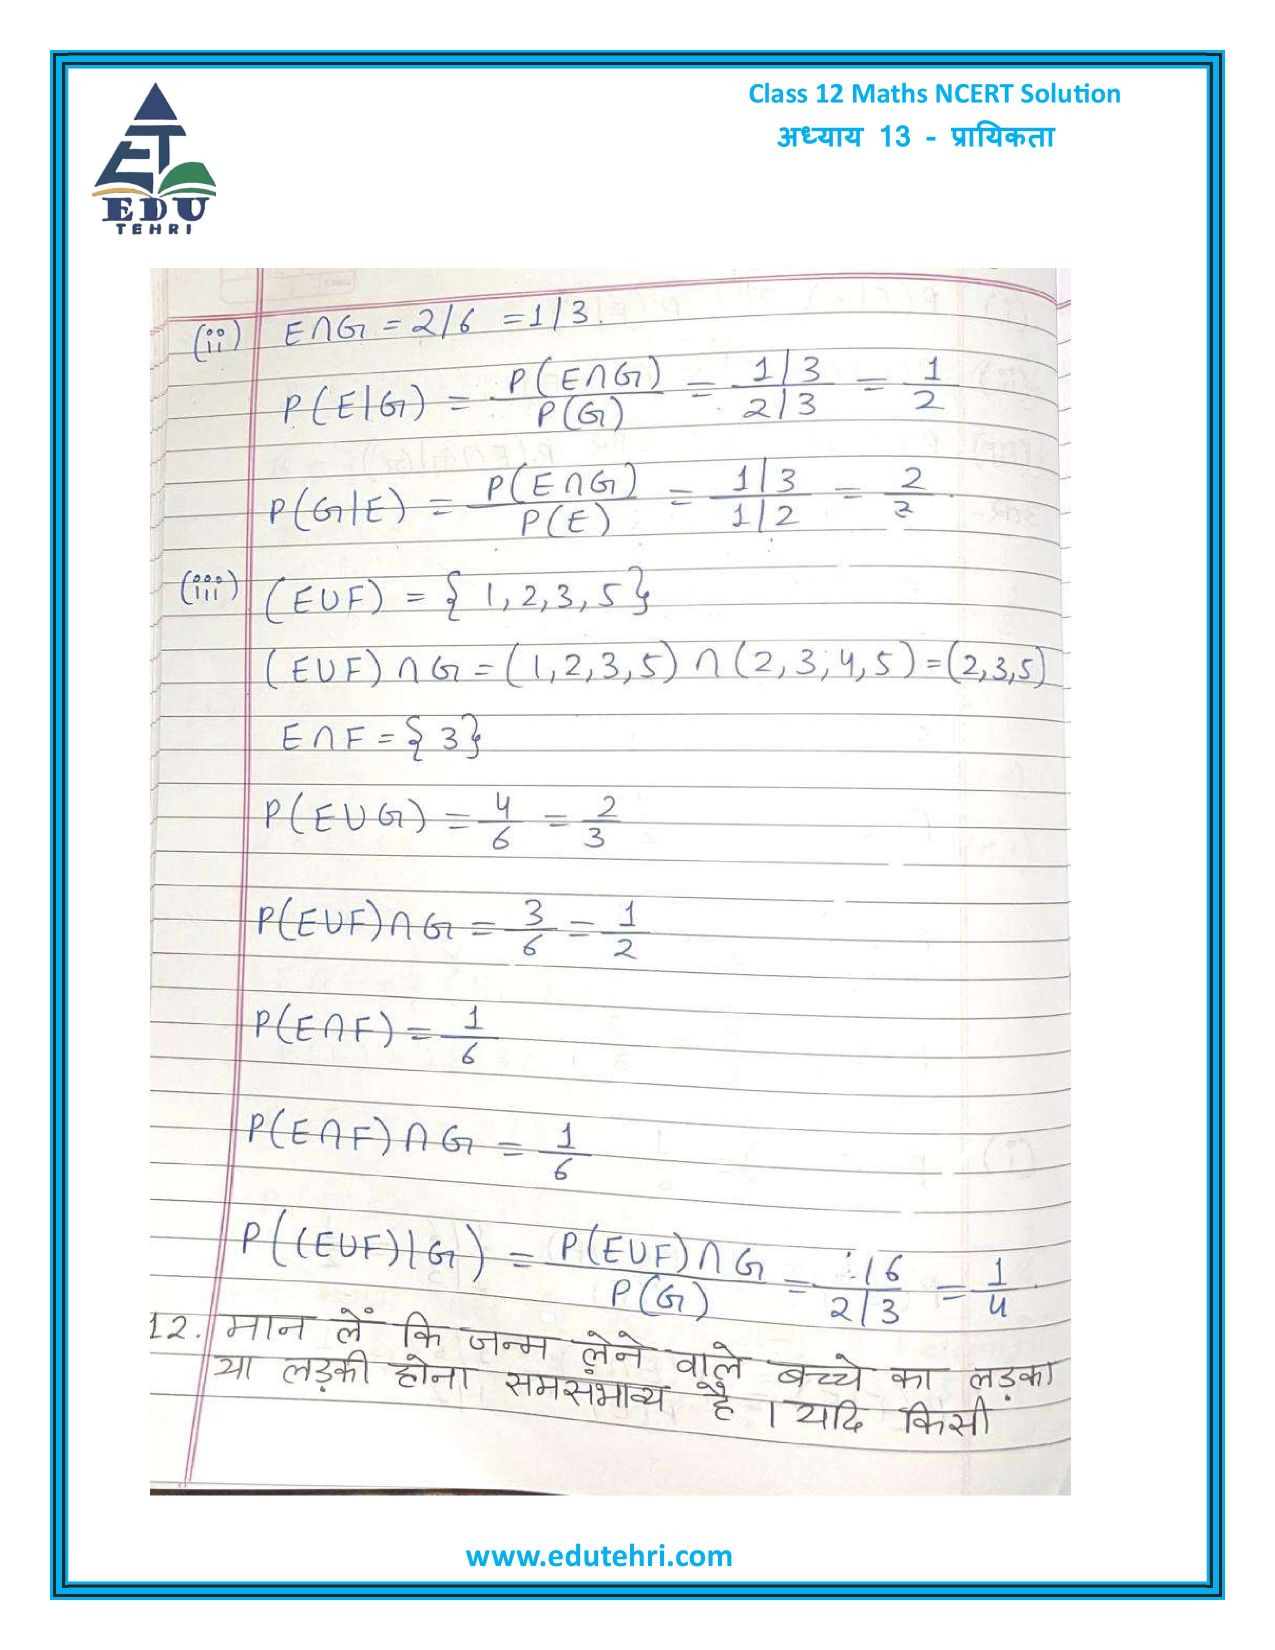 Class 12 Maths NCERT Solution
अध्याय 13 - प्रायिकता
EDU
TEHRI
(ii) E∩G = 2/6 = 1/3.
P(E|G) = P(E∩G)/P(G) = 1/3 / 2/3 = 1/2
P(G|E) = P(E∩G)/P(E) = 1/3 / 1/2 = 2/3.
(iii) (E∪F) = { 1, 2, 3, 5}
(E∪F) ∩ G = (1, 2, 3, 5) ∩ (2, 3, 4, 5) = (2,3,5)
E∩F = { 3}
P(E∪G) = 4/6 = 2/3
P(E∪F)∩G = 3/6 = 1/2
P(E∩F) = 1/6
P(E∩F)∩G = 1/6
P((E∪F)|G) = P(E∪F)∩G/P(G) = 16 / 2/3 = 1/4
12. मान लें कि जन्म लेने वाले बच्चे का लड़का
या लड़की होना समसभाव्य है । यदि किसी
www.edutehri.com